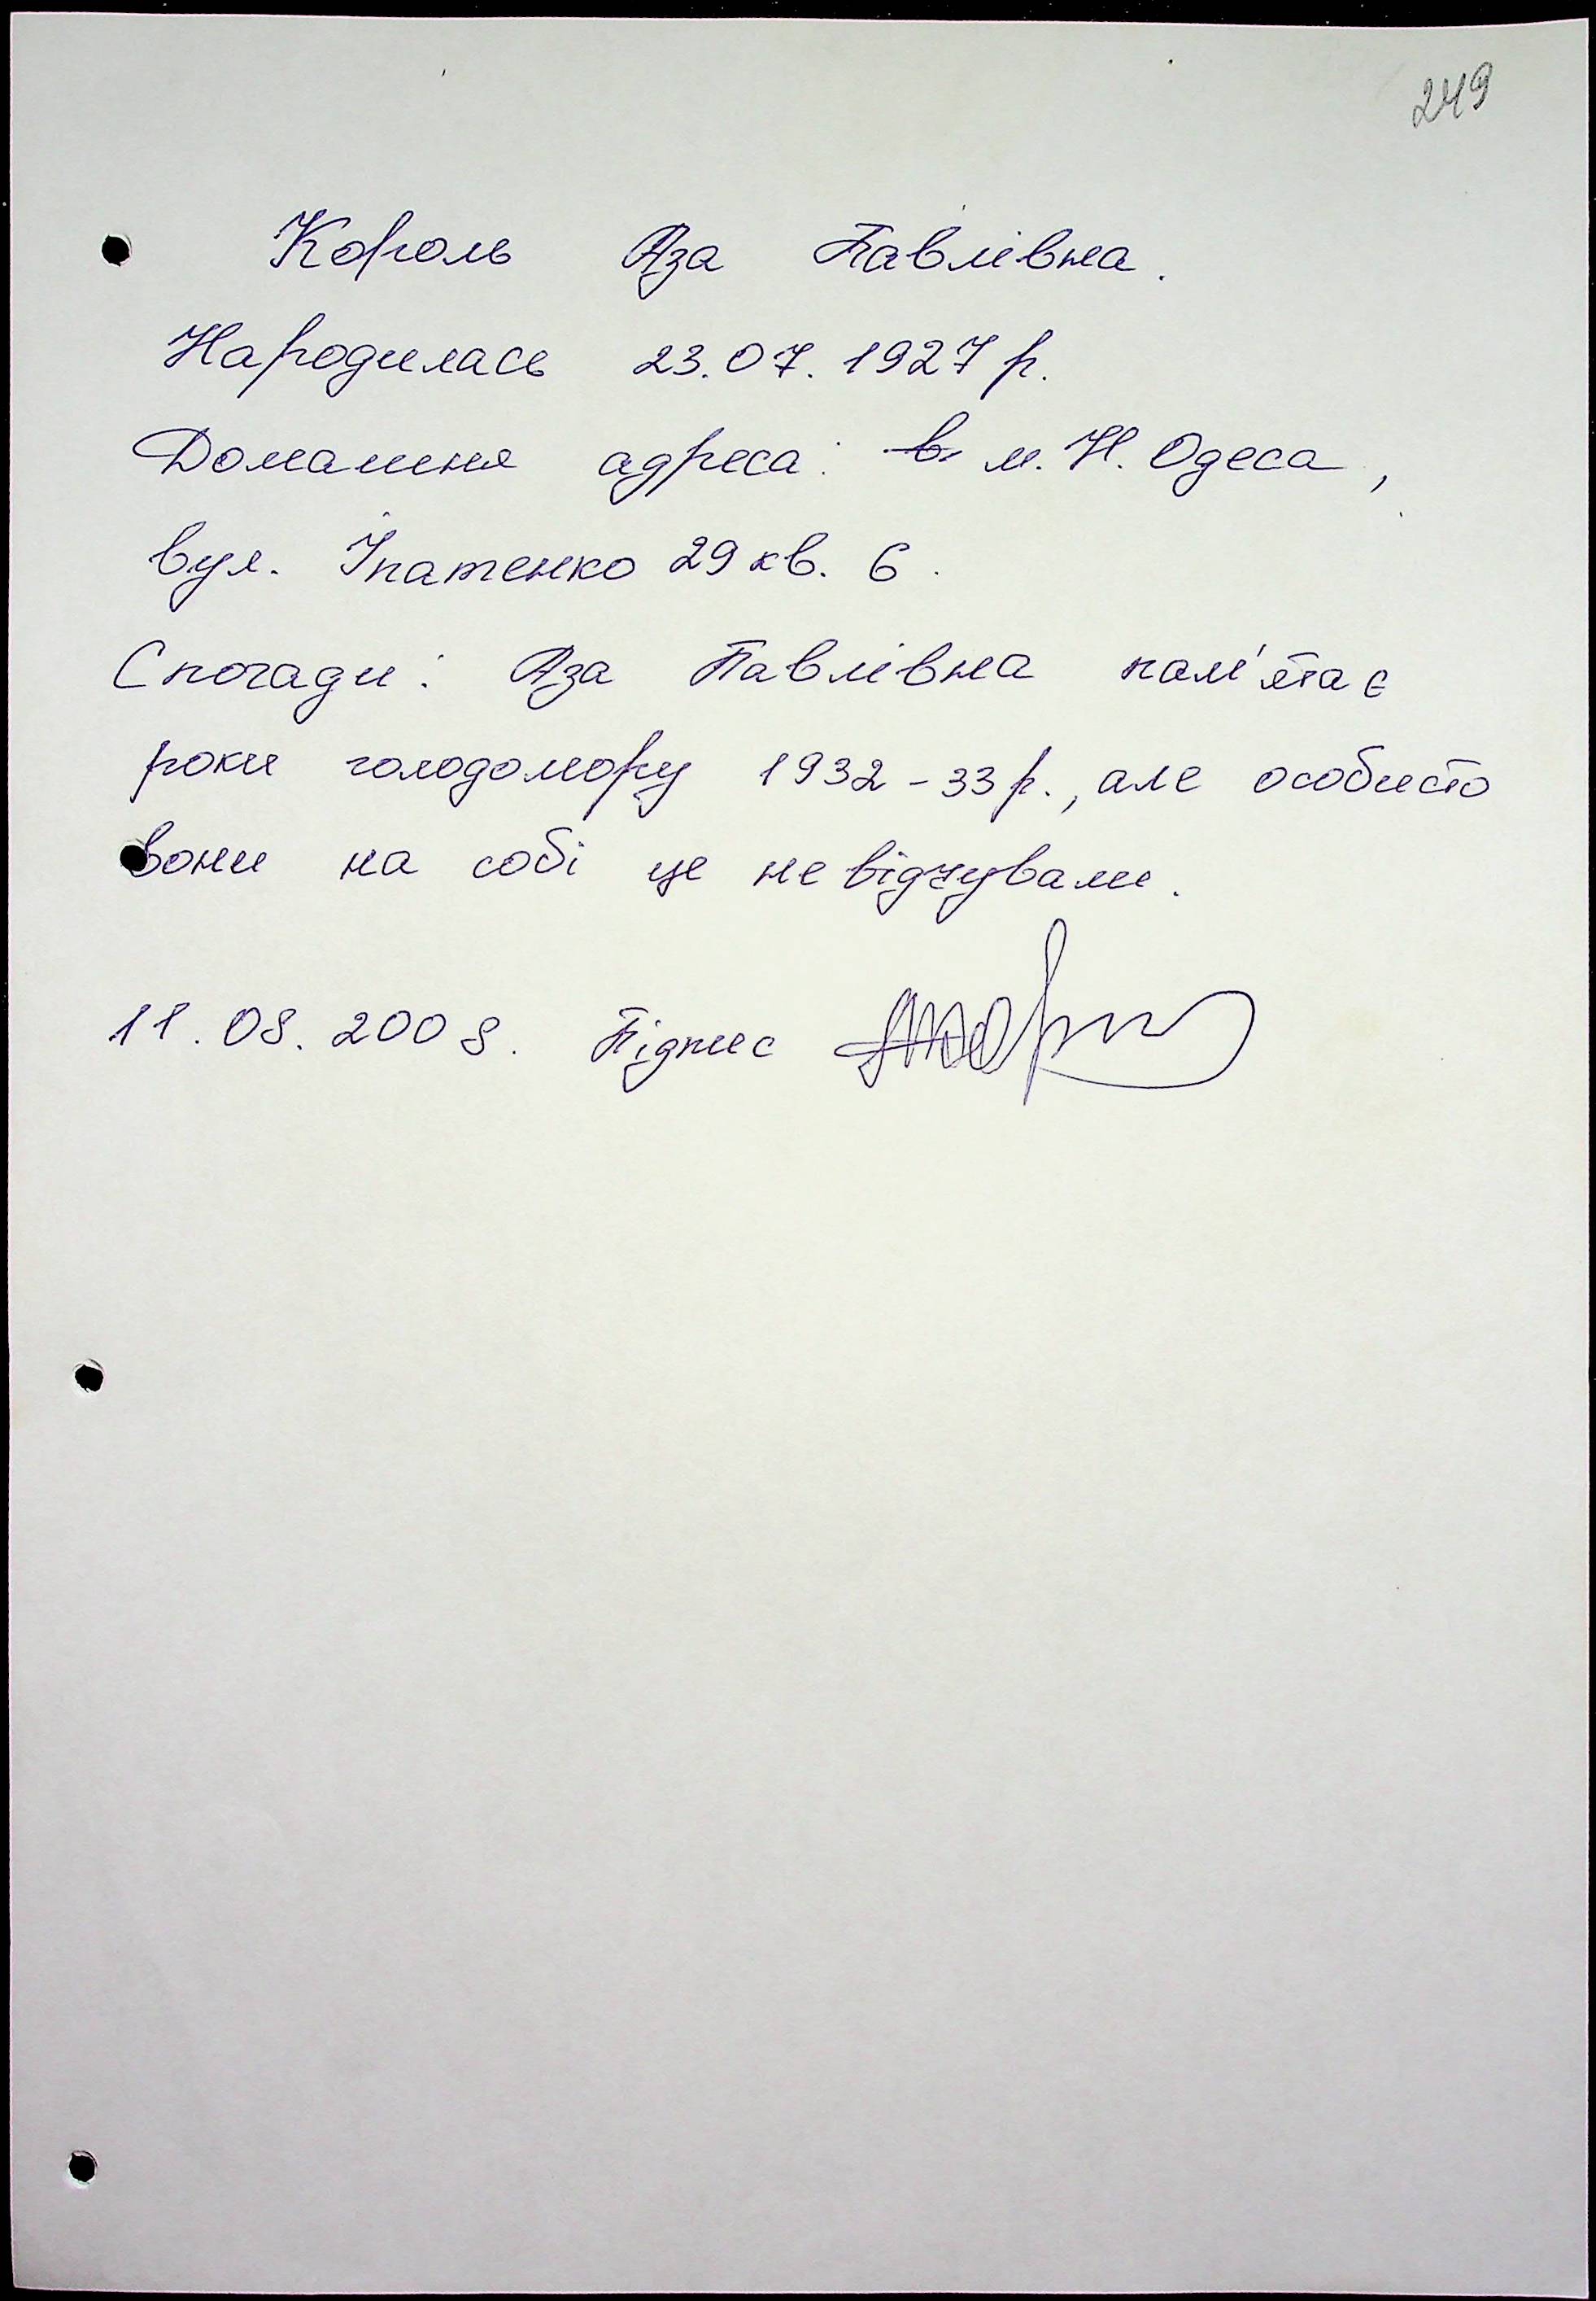 249
Король Аза Павлівна.
Народилась 23.07.1927 р.
Домашня адреса: в м. Н. Одеса,
вул. Іпатенко 29 кв. 6.
Спогади: Аза Павлівна пам'ятає
роки голодомору 1932-33 р., але особисто
вони на собі це не відчували.
11.08.2008. Підпис